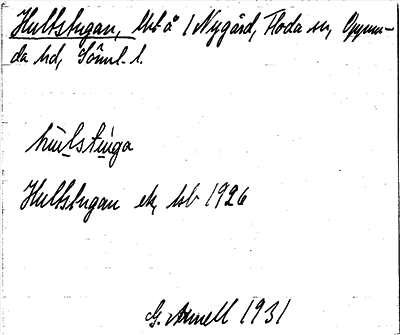 Hultstugan, lht å 1 Nygård, Floda sn, Oppun-
da hd, Söml. l.
hultstuga
Hultstugan ek, bb 1926
G. Arnell 1931